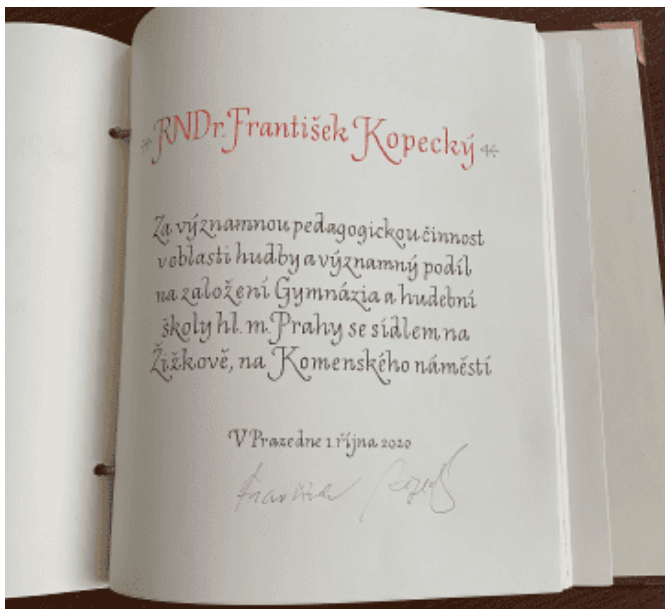 RNDr. František Kopecký
Za významnou pedagogickou činnost
v oblasti hudby a významný podíl
na založení Gymnázia a hudební
školy hl. m. Prahy se sídlem na
Žižkově, na Komenského náměstí
V Praze dne 1. října 2020
František